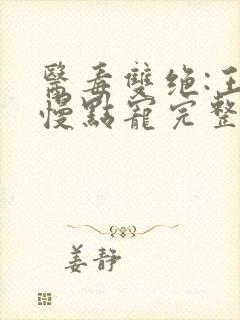 醫毒雙绝:王
慢點寵完整
姜静